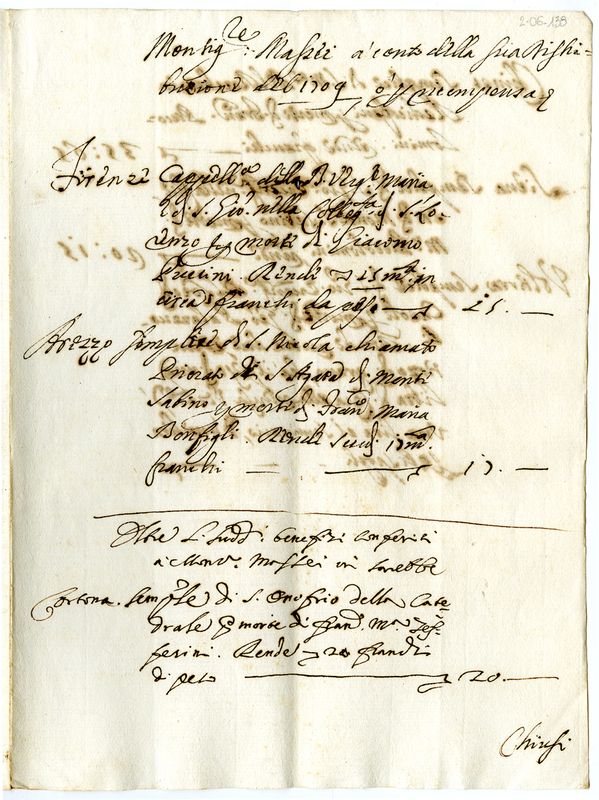 2-06-138
Montig.re Massei a conto della sua Distri-
buzione del 1709 o p ricompensa
Firenze Cappell.a della B. Verg.e Maria
e di S. Gio. nella Colleg.ta di S. Lo-
renzo p morte di Giacomo
Puccini. Rende 25 m.ta in
circa franchi da pesi 25. —
Arezzo Simplice di S. Nicola chiamato
Priorato di S. Agata di Monte
Sabino p morte di Fran.o Maria
Bonfigli. Rende scudi 17 m.ta
franchi — — 17. —
Oltre i Sudd.i benefizi conferiti
a Mons.r Massei vi sarebbe
Cortona. Semp.le di S. Onofrio della Cate-
drale p morte di Fran.o M.a Zef-
ferini. Rende 20 franchi
di peso — 20. —
Chiusi